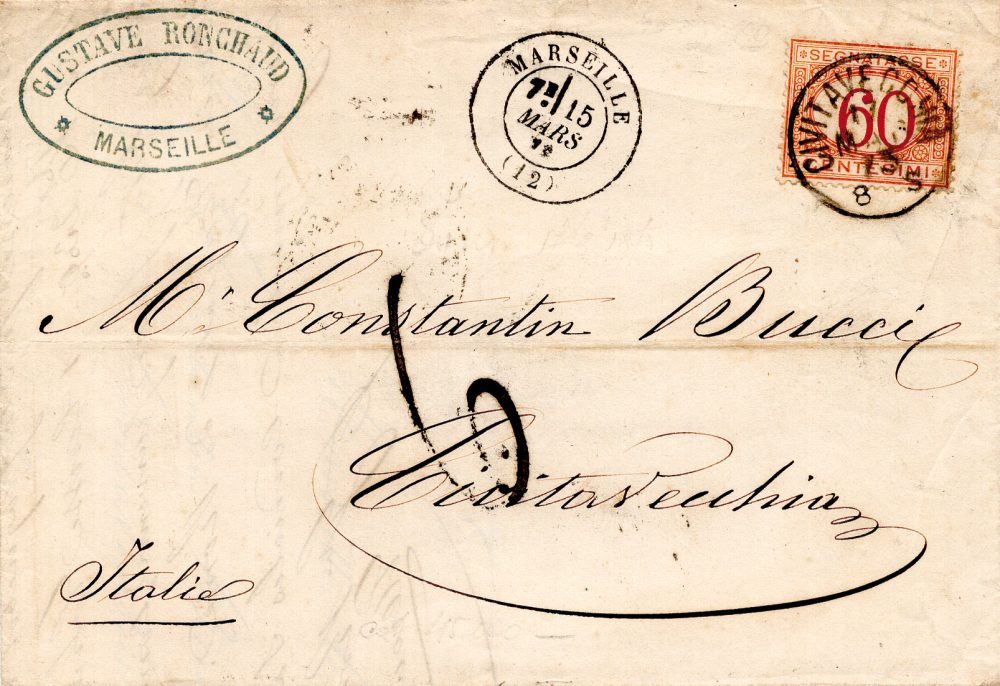 GUSTAVE RONCHAUD
MARSEILLE
MARSEILLE
7E/ 15
MARS
(12)
SEGNATASSE
60
CIVITAVECCHIA
8
Mr Constantin Bucci
Civitavecchia
Italie